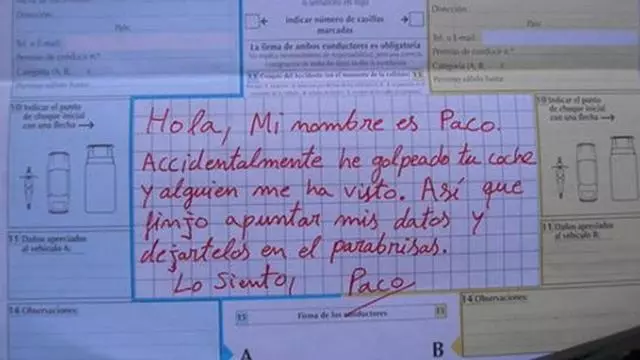 Dirección:
País:
Tel. o E-mail:
Permiso de conducir n.º
Categoría (A, B,
Permiso válido hasta
indicar número de casillas
marcadas
La firma de ambos conductores es obligatoria
Dirección:
País:
Tel. o E-mail:
Permiso de conducir n.º
Categoría (A, B,
Permiso válido hasta
10 Indicar el punto
de choque inicial
con una flecha →
Hola, Mi nombre es Paco.
Accidentalmente he golpeado tu coche
y alguien me ha visto. Así que
finjo apuntar mis datos y
dejártelos en el parabrisas.
Lo Siento, Paco
10 Indicar el punto
de choque inicial
con una flecha →
11 Daños apreciados
al vehículo A:
11 Daños apreciados
al vehículo B:
14 Observaciones:
15 Firma de los conductores 15
A B
14 Observaciones: